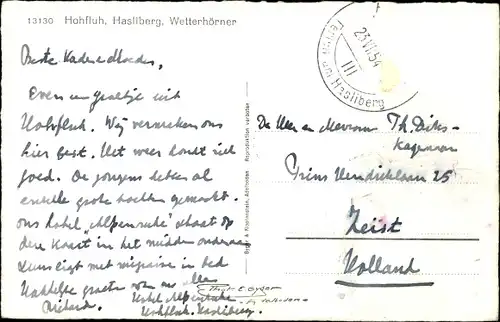 13130 Hohfluh, Hasliberg, Wetterhörner
23.VII.54
III
am Hasliberg
Beste Vader en Moeder,
Even een groetje uit
Hohfluh. Wij vermaken ons
hier best. Het weer houdt zich
goed. De jongens hebben al
enkele grote tochten gemaakt.
Ons hotel "Alpenruhe" staat op
deze kaart in het midden onderaan
ligt met in bed
Hartelijke groeten van ons allen
Richard.
Hotel Alpenruhe
Hohfluh. Hasliberg.
De Heer en Mevrouw Th. Dirks-
Prins Hendriklaan 25
Zeist
Holland
Reproduktion verboten